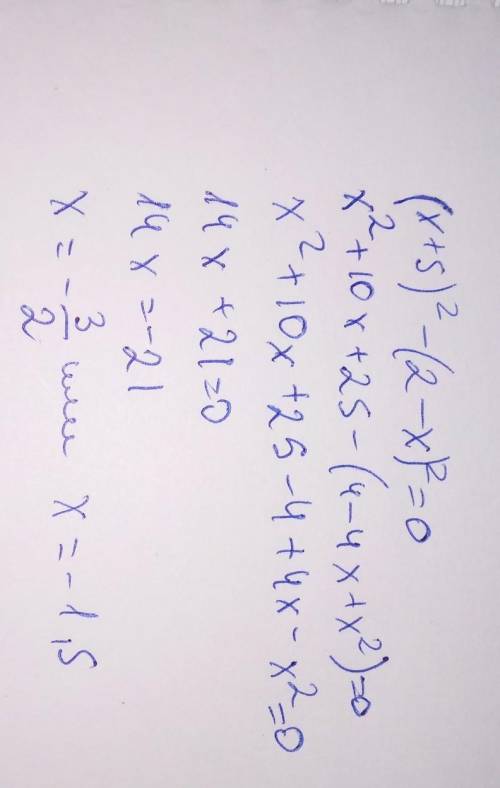 (x+5)² - (2-x)² = 0
x² + 10x + 25 - (4 - 4x + x²) = 0
x² + 10x + 25 - 4 + 4x - x² = 0
14x + 21 = 0
14x = -21
x = -3/2 или x = -1,5